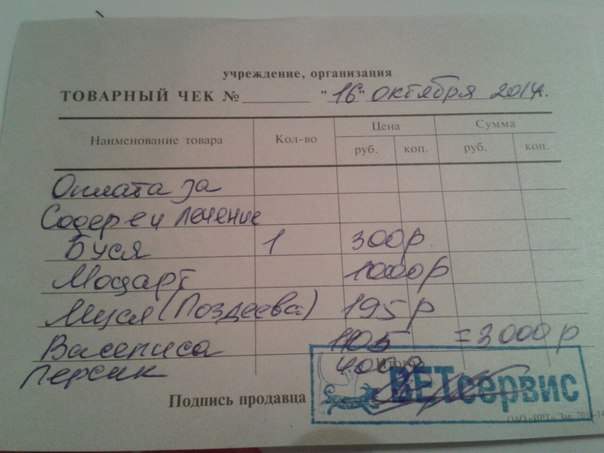 учреждение, организация
ТОВАРНЫЙ ЧЕК № "16" октября 2014г.
Наименование товара Кол-во Цена Сумма
руб. коп. руб. коп.
Оплата за
Содер е и лечение
Буся 1 300р.
Моцарт 1000р
Муся (Поздеева) 195р
Василиса 1105 =3000р
Персик 400р
Подпись продавца
ВЕТсервис